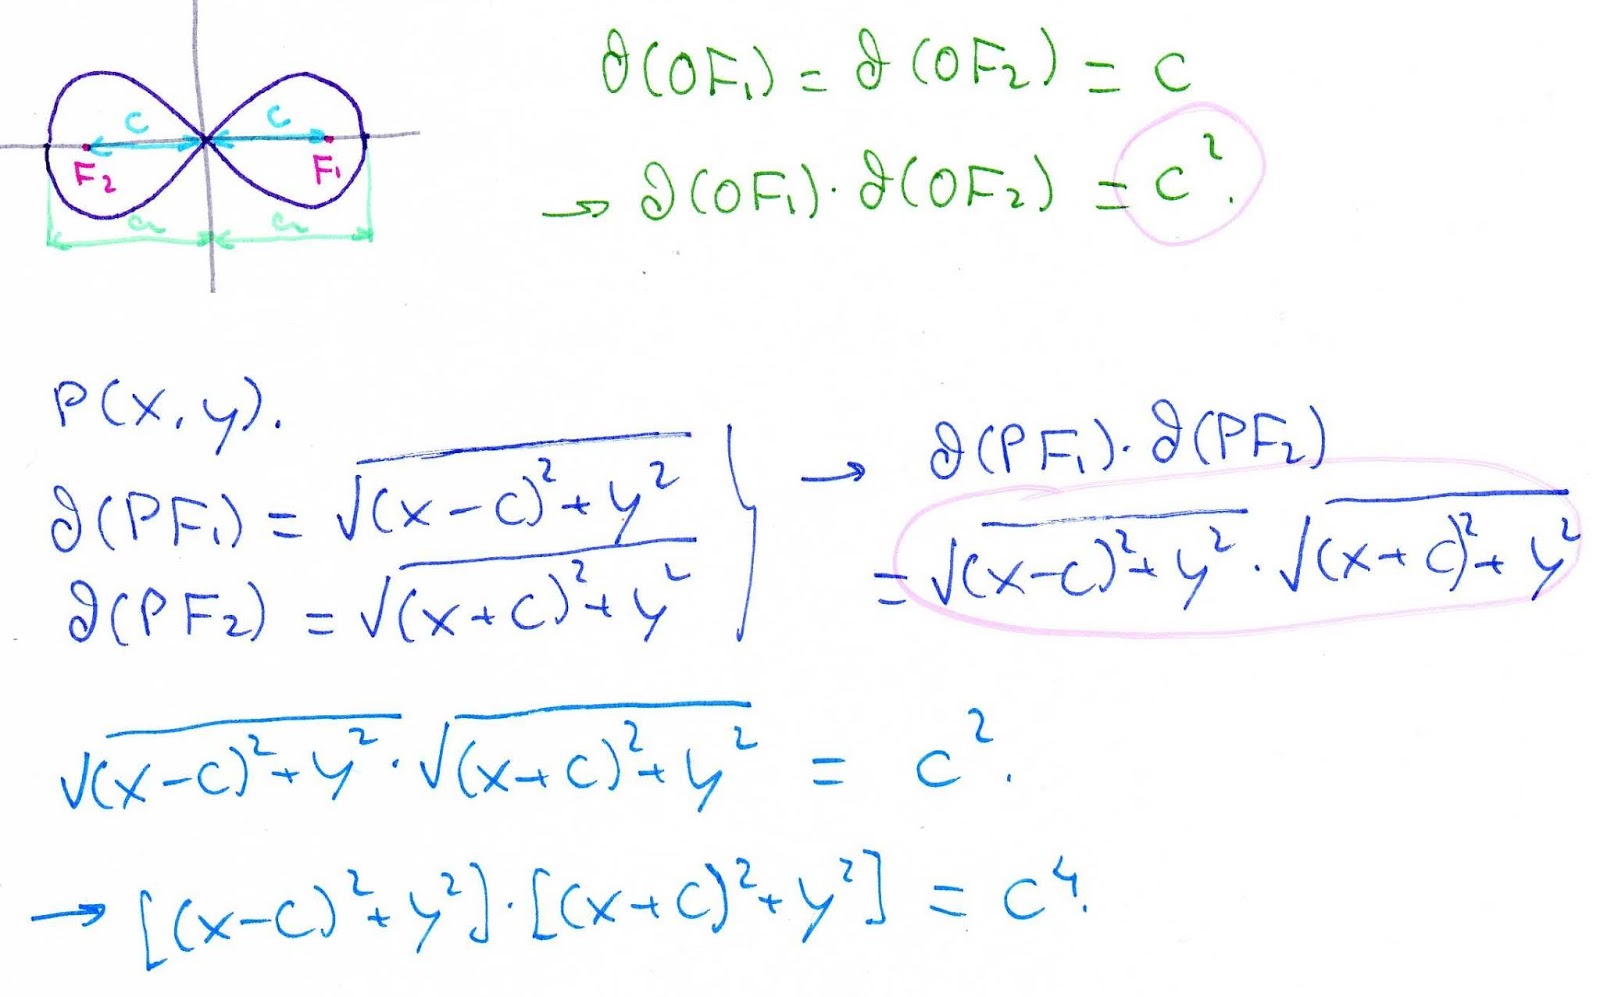 ∂(OF₁) = ∂(OF₂) = c
→ ∂(OF₁)·∂(OF₂) = c².
c c
F₂ F₁
a a
P(x,y).
∂(PF₁) = √((x-c)²+y²)
∂(PF₂) = √((x+c)²+y²)
→ ∂(PF₁)·∂(PF₂)
= √((x-c)²+y²) · √((x+c)²+y²)
√((x-c)²+y²) · √((x+c)²+y²) = c².
→ [(x-c)²+y²]·[(x+c)²+y²] = c⁴.